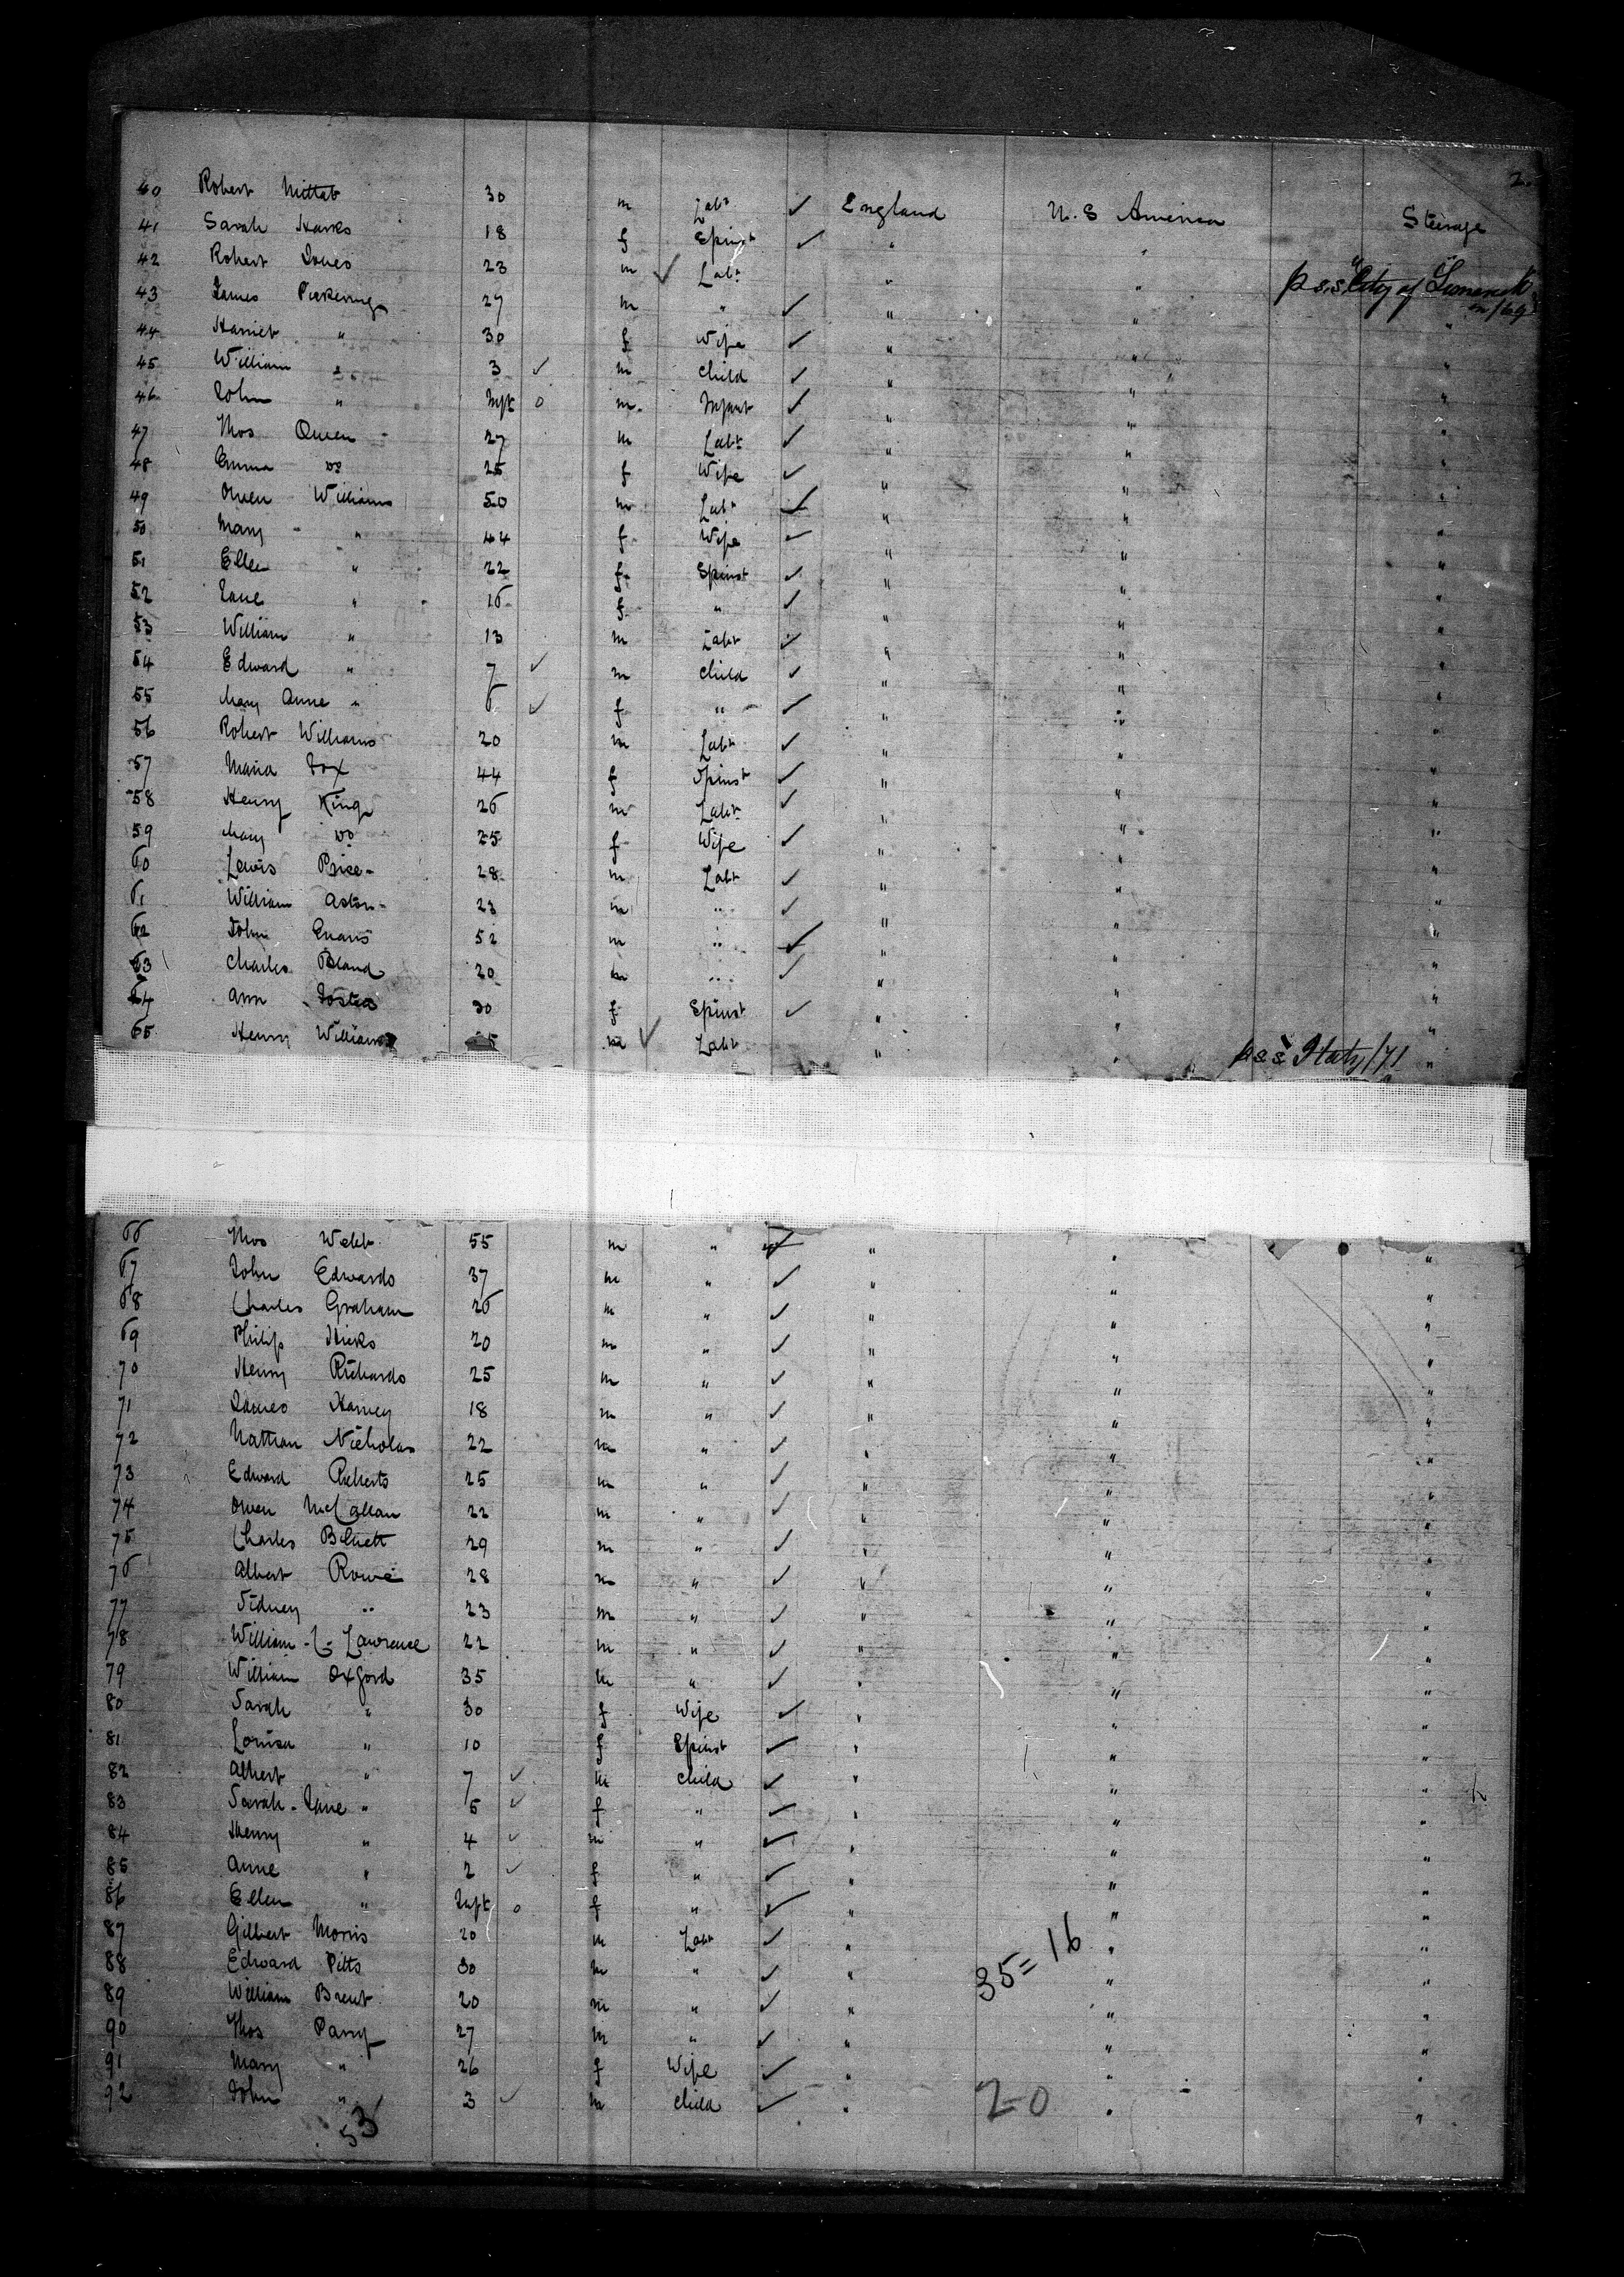 2.
40 Robert 30 m Labr ✓ England U.S America Steerage
41 Sarah Hawks 18 f Spinst ✓ " " "
42 Robert Jones 23 m ✓ Labr " " p s.s. "City of Limerick" /69
43 James Pickering 27 m " ✓ " " "
44 Harriet " 30 f Wife ✓ " " "
45 William " 3 ✓ m Child ✓ " " "
46 John " Inft 0 m. Infant ✓ " " "
47 Thos Owen 27 m Labr ✓ " " "
48 Emma Do 25 f Wife ✓ " " "
49 Owen Williams 50 m Labr ✓ " " "
50 Mary " 44 f Wife ✓ " " "
51 Ellen " 22 f Spinst ✓ " " "
52 Jane " 16 f " ✓ " " "
53 William " 13 m Labr ✓ " " "
54 Edward " 7 ✓ m Child ✓ " " "
55 Mary Anne " 6 ✓ f " ✓ " " "
56 Robert Williams 20 m Labr ✓ " " "
57 Maria Fox 44 f Spinst ✓ " " "
58 Henry King 26 m Labr ✓ " " "
59 Mary Do 25 f Wife ✓ " " "
60 Lewis Price 28 m Labr ✓ " " "
61 William Aston 23 m " ✓ " " "
62 John Evans 52 m " ✓ " " "
63 Charles Bland 20 m " ✓ " " "
64 Ann Foster 30 f Spinst ✓ " " "
65 Henry Williams m ✓ Labr " " p s.s Italy /71 "
66 Thos Webb 55 m " ✓ " " "
67 John Edwards 37 m " ✓ " " "
68 Charles Graham 26 m " ✓ " " "
69 Philip Hicks 20 m " ✓ " " "
70 Henry Richards 25 m " ✓ " " "
71 James Harvey 18 m " ✓ " " "
72 Nathan Nicholas 22 m " ✓ " " "
73 Edward Roberts 25 m " ✓ " " "
74 Owen McCallan 22 m " ✓ " " "
75 Charles 29 m " ✓ " " "
76 Albert Rowe 28 m " ✓ " " "
77 Sidney " 23 m " ✓ " " "
78 William L. Lawrence 22 m " ✓ " " "
79 William Oxford 35 m " ✓ " " "
80 Sarah " 30 f Wife ✓ " " "
81 Louisa " 10 f Spinst ✓ " " "
82 Albert " 7 ✓ m Child ✓ " " "
83 Sarah Jane " 5 ✓ f " ✓ " " "
84 Henry " 4 ✓ m " ✓ " " "
85 Anne " 2 ✓ f " ✓ " " "
86 Ellen " Inft 0 f " ✓ " " "
87 Gilbert Morris 20 m Labr ✓ " " "
88 Edward Pitts 30 m " ✓ " 35=16 " "
89 William Brent 20 m " ✓ " " "
90 Thos Parry 27 m " ✓ " " "
91 Mary " 26 f Wife ✓ " " "
92 John " 3 ✓ m Child ✓ " 20 " "
53